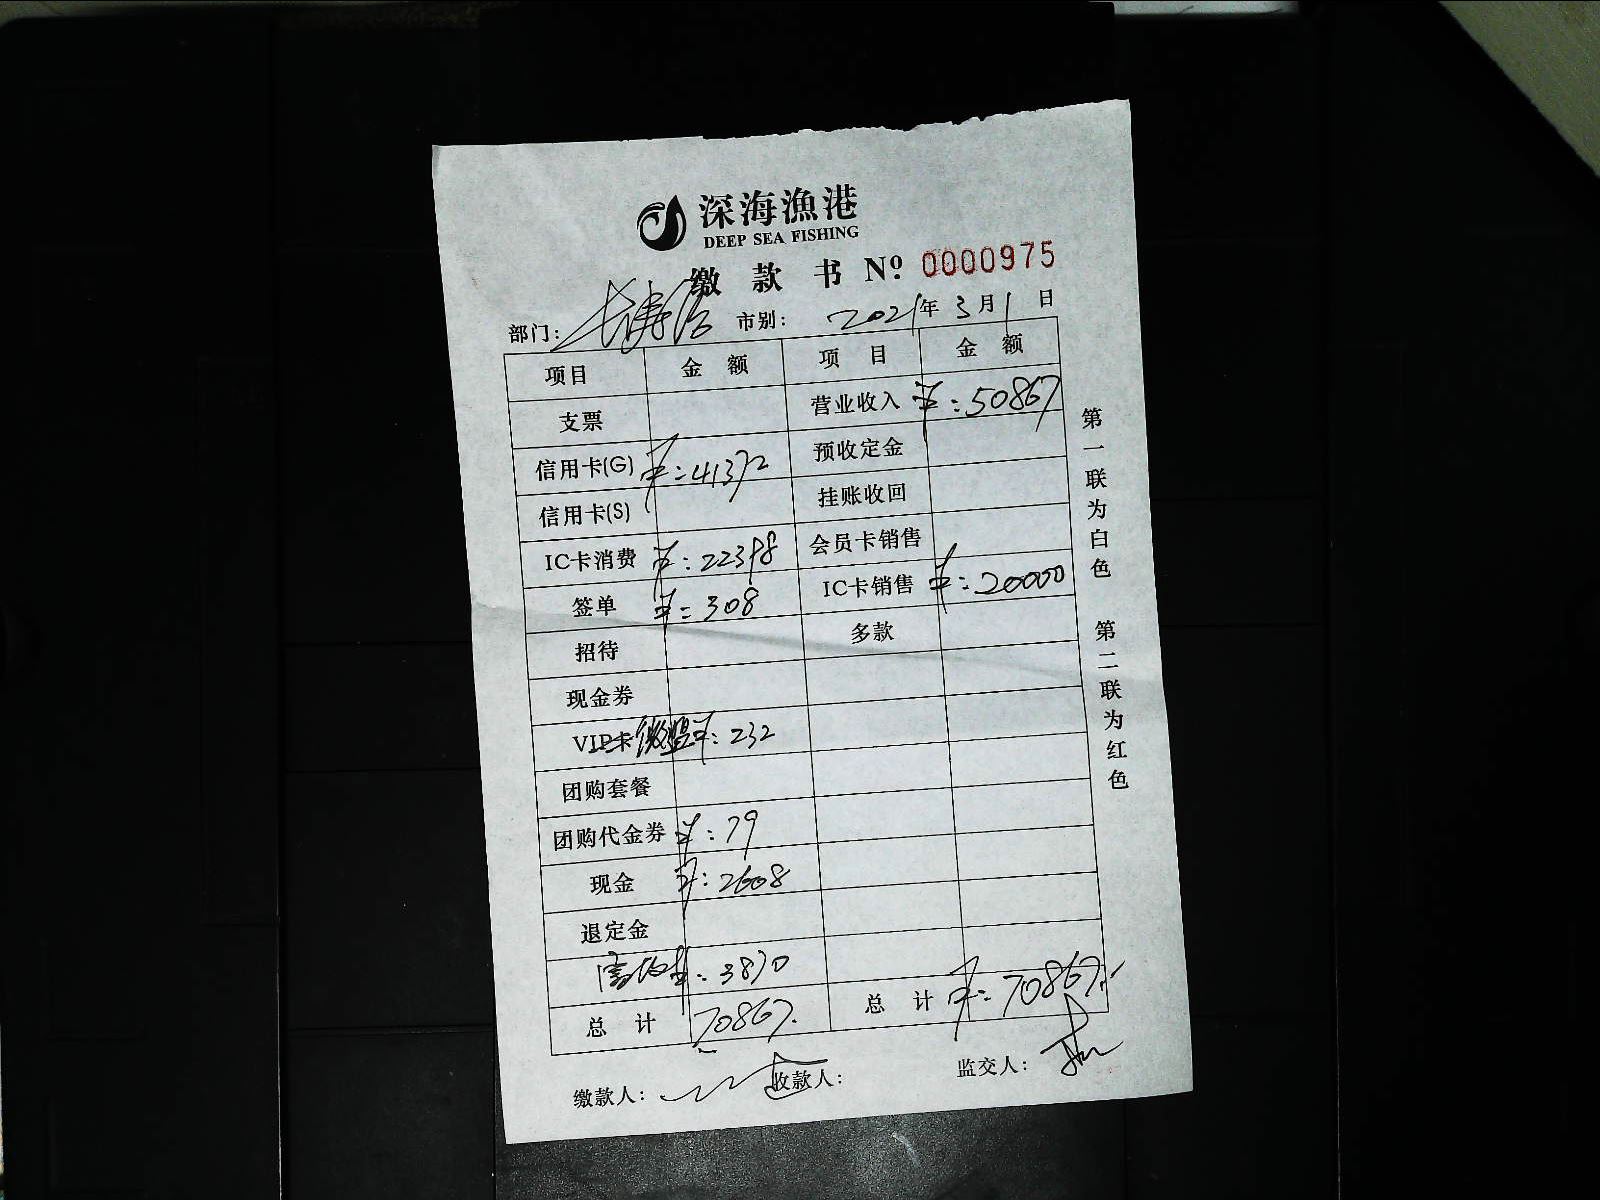 深海漁港
DEEP SEA FISHING
缴款书 Nº: 0000975
部门: 市别: 2021年3月1日
项目 金额 项目 金额
支票 营业收入 ¥:50867
信用卡(G) ¥:41372 预收定金
信用卡(S) 挂账收回
IC卡消费 ¥:22398 会员卡销售
签单 ¥:308 IC卡销售 ¥:20000
招待 多款
现金券
VIP卡 微盟 ¥:232
团购套餐
团购代金券 ¥:79
现金 ¥:2608
退定金
¥:3870
总计 70867. 总计 ¥:70867.
缴款人: 收款人: 监交人:
第一联为白色 第二联为红色